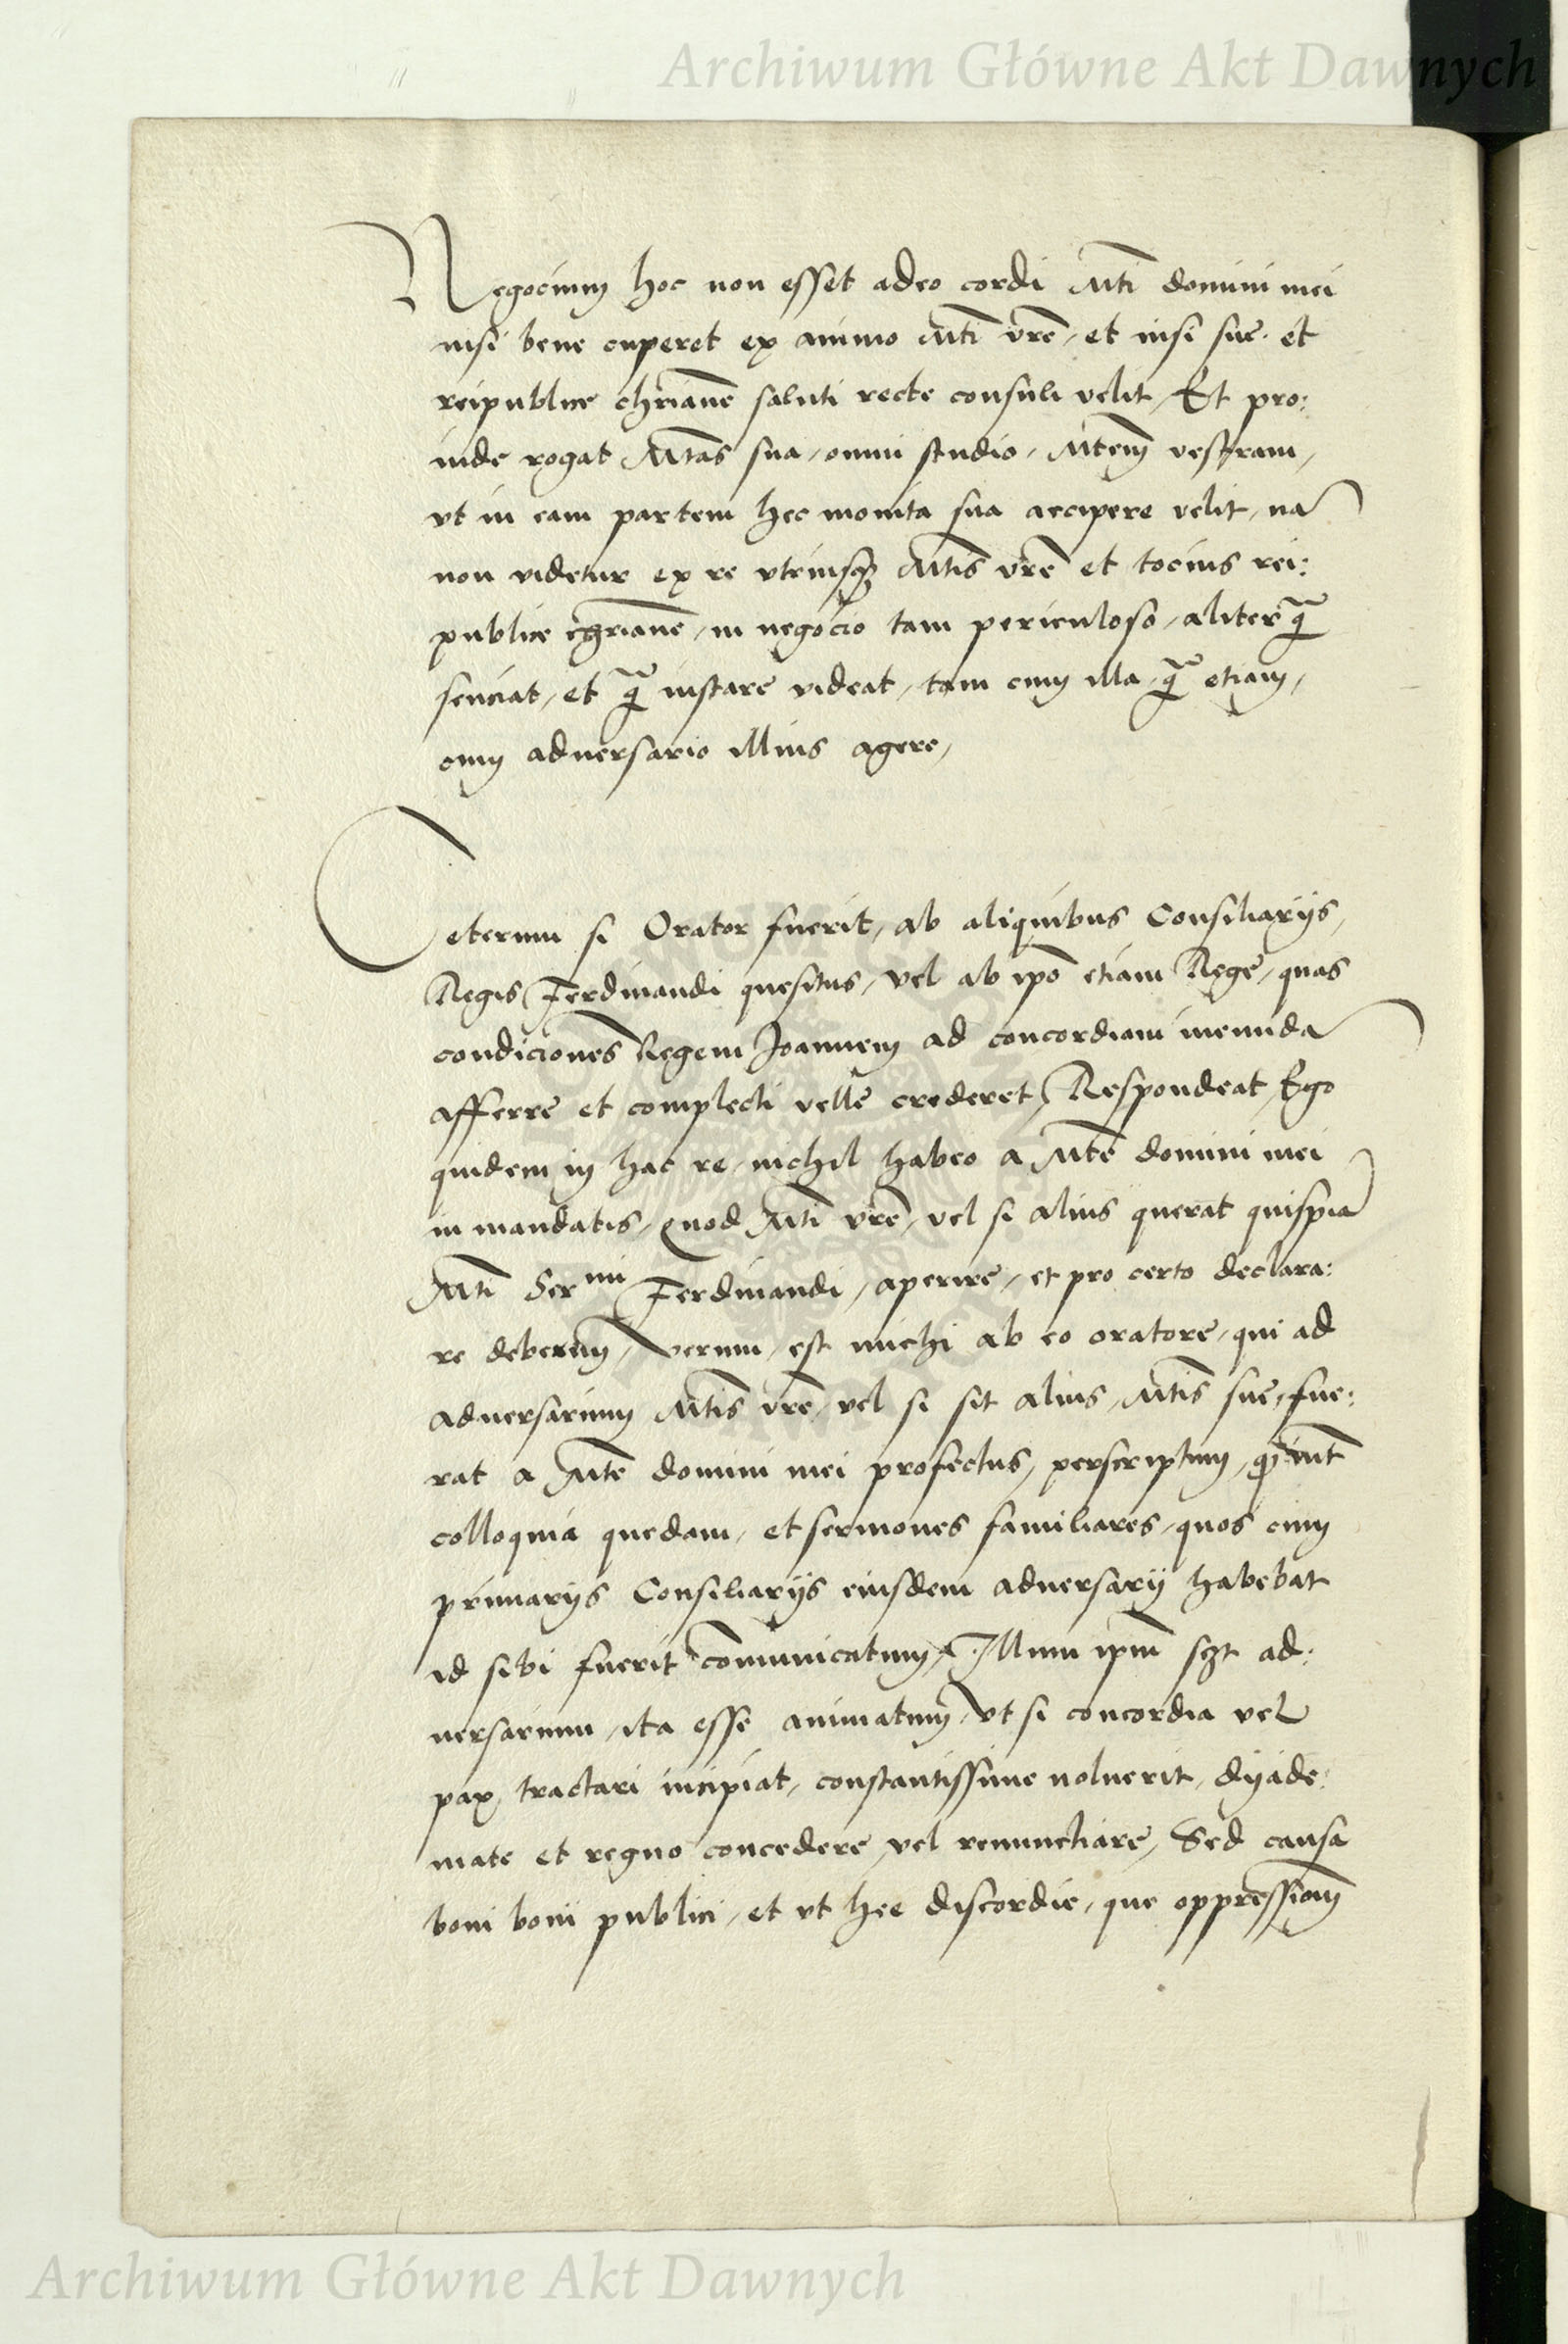 Archiwum Główne Akt Dawnych
Negocium hoc non esset adeo cordi Mti domini mei
nisi bene cuperet ex animo Mti vre, et nisi sue et
reipublice chriane saluti recte consuli velit, Et pro:
inde rogat Mtas sua, omni studio, Mtem vestram,
vt in eam partem hec monita sua accipere velit, na
non videtur ex re vtriusq Mtis vre et tocius rei:
publice chriane, in negocio tam periculoso, aliter q
senciat, et q instare videat, tam cum illa, q etiam,
cum adversario illius agere,
Ceterum si Orator fuerit, ab aliquibus Consiliarijs,
Regis Ferdinandi quesitus, vel ab ipo etiam Rege, quas
condiciones Regem Joannem ad concordiam ineunda
afferre et complecti velle crederet, Respondeat, Ego
quidem in hac re, nichil habeo a Mte domini mei
in mandatis, quod Mti vre, vel si alius querat quispia
Mti Ser mi Ferdinandi, aperire, et pro certo declara:
re deberem, Verum, est michi ab eo oratore, qui ad
adversarium Mtis vre, vel si sit alius, Mtis sue, fue:
rat a Mte domini mei profectus, perscriptum, q int
colloquia quedam, et sermones familiares, quos cum
primarijs Consiliarijs eiusdem adversarij habebat
id sibi fuerit comunicatum, Illum ipm sczt ad:
versarium, ita esse animatum, Vt si concordia vel
pax, tractari incipiat, constantissime noluerit, dyade:
mate et regno concedere, vel renunctiare, Sed causa
boni boni publici, et vt hee discordie, que oppressionem
Archiwum Główne Akt Dawnych